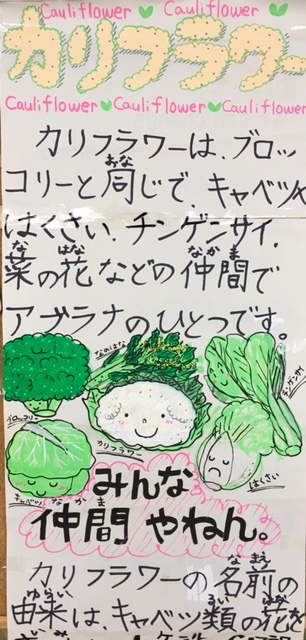 Cauliflower Cauliflower
カリフラワー
Cauliflower Cauliflower Cauliflower
カリフラワーは、ブロッ
コリーと同じで、キャベツ、
はくさい、チンゲンサイ、
菜の花などの仲間で
アブラナのひとつです。
なのはな
ブロッコリー
カリフラワー
チンゲンサイ
キャベツ
はくさい
みんな
仲間 やねん。
カリフラワーの名前の
由来は、キャベツ類の花を